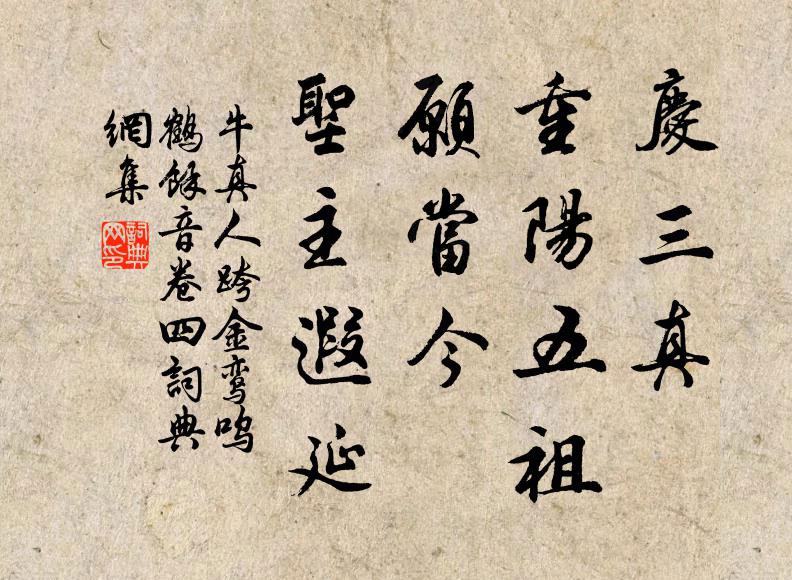 慶三真
重陽五祖
願當今
聖主遐延
牛真人跨金鸾鸣
鶴餘音卷四詞典
網集
詞典
网印